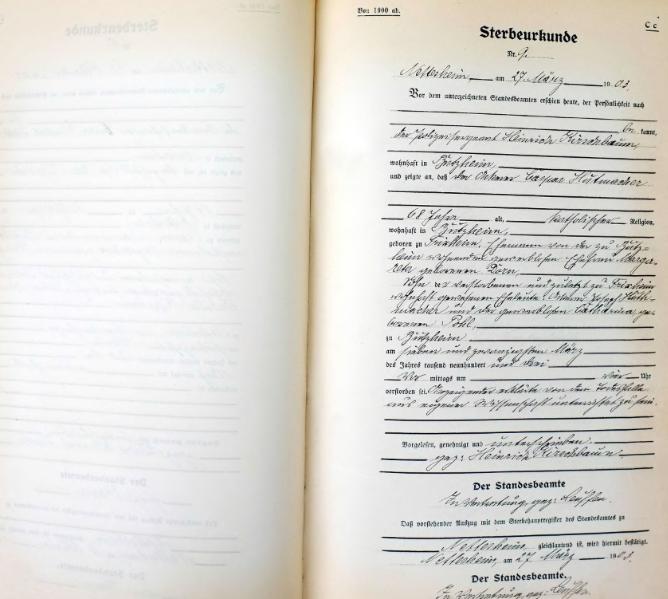 Von 1900 ab.
C c
Sterbeurkunde
Nr. 9.
Nettesheim, am 27 März 1903.
Vor dem unterzeichneten Standesbeamten erschien heute, der Persönlichkeit nach
be kannt,
der Polizeisergeant Heinrich Kirschbaum,
wohnhaft in Butzheim,
und zeigte an, daß der Ackerer Caspar Hutmacher
68 Jahr alt, katholischer Religion,
wohnhaft in Butzheim,
geboren zu Frixheim, Ehemann von der zu Butz-
heim wohnenden gewerblosen Ehefrau Marga-
reth geborenen Dorn,
Sohn der verstorbenen und zuletzt zu Frixheim
wohnhaft gewesenen Eheleute: Ackerer Josef Hut-
macher und der gewerblosen Catharina ge-
borenen Pohl,
zu Butzheim
am sieben und zwanzigsten März
des Jahres tausend neunhundert und drei
Vor mittags um vier Uhr
verstorben sei. Anzeigender erklärte von dem Todesfalle
aus eigener Wissenschaft unterrichtet zu sein.
Vorgelesen, genehmigt und unterschrieben.
gez: Heinrich Kirschbaum
Der Standesbeamte
In Vertretung, gez:
Daß vorstehender Auszug mit dem Sterbehauptregister des Standesamtes zu
Nettesheim gleichlautend ist, wird hiermit bestätigt.
Nettesheim, am 27 März 1903.
Der Standesbeamte,
In Vertretung, gez: